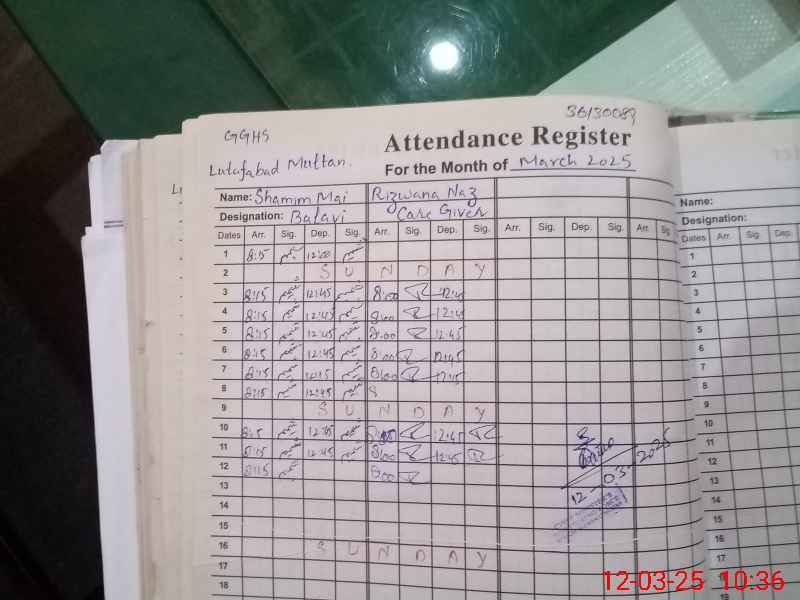 GGHS
36130089
Attendance Register
Lutafabad Multan.
For the Month of March 2025
Name: Shamim Mai Rizwana Naz
Designation: Balavi Care Giver
Dates Arr. Sig. Dep. Sig. Arr. Sig. Dep. Sig. Arr. Sig. Dep. Sig. Arr. Sig.
1 8:15 12:00
2 S U N D A Y
3 8:15 12:45 8:00 12:45
4 8:15 12:45 8:00 12:45
5 8:15 12:45 8:00 12:45
6 8:15 12:45 8:00 12:45
7 8:15 12:15 8:00 12:15
8 8:15 12:45 8
9 S U N D A Y
10 8:15 12:45 8:00 12:45
11 8:15 12:45 8:00 12:45
12 8:15 8:00
13
14
15
16 S U N D A Y
17
18
12-03-2025
Name:
Designation:
Dates Arr. Sig. Dep.
1
2
3
4
5
6
7
8
9
10
11
12
13
14
15
16
17
19
12-03-25 10:36